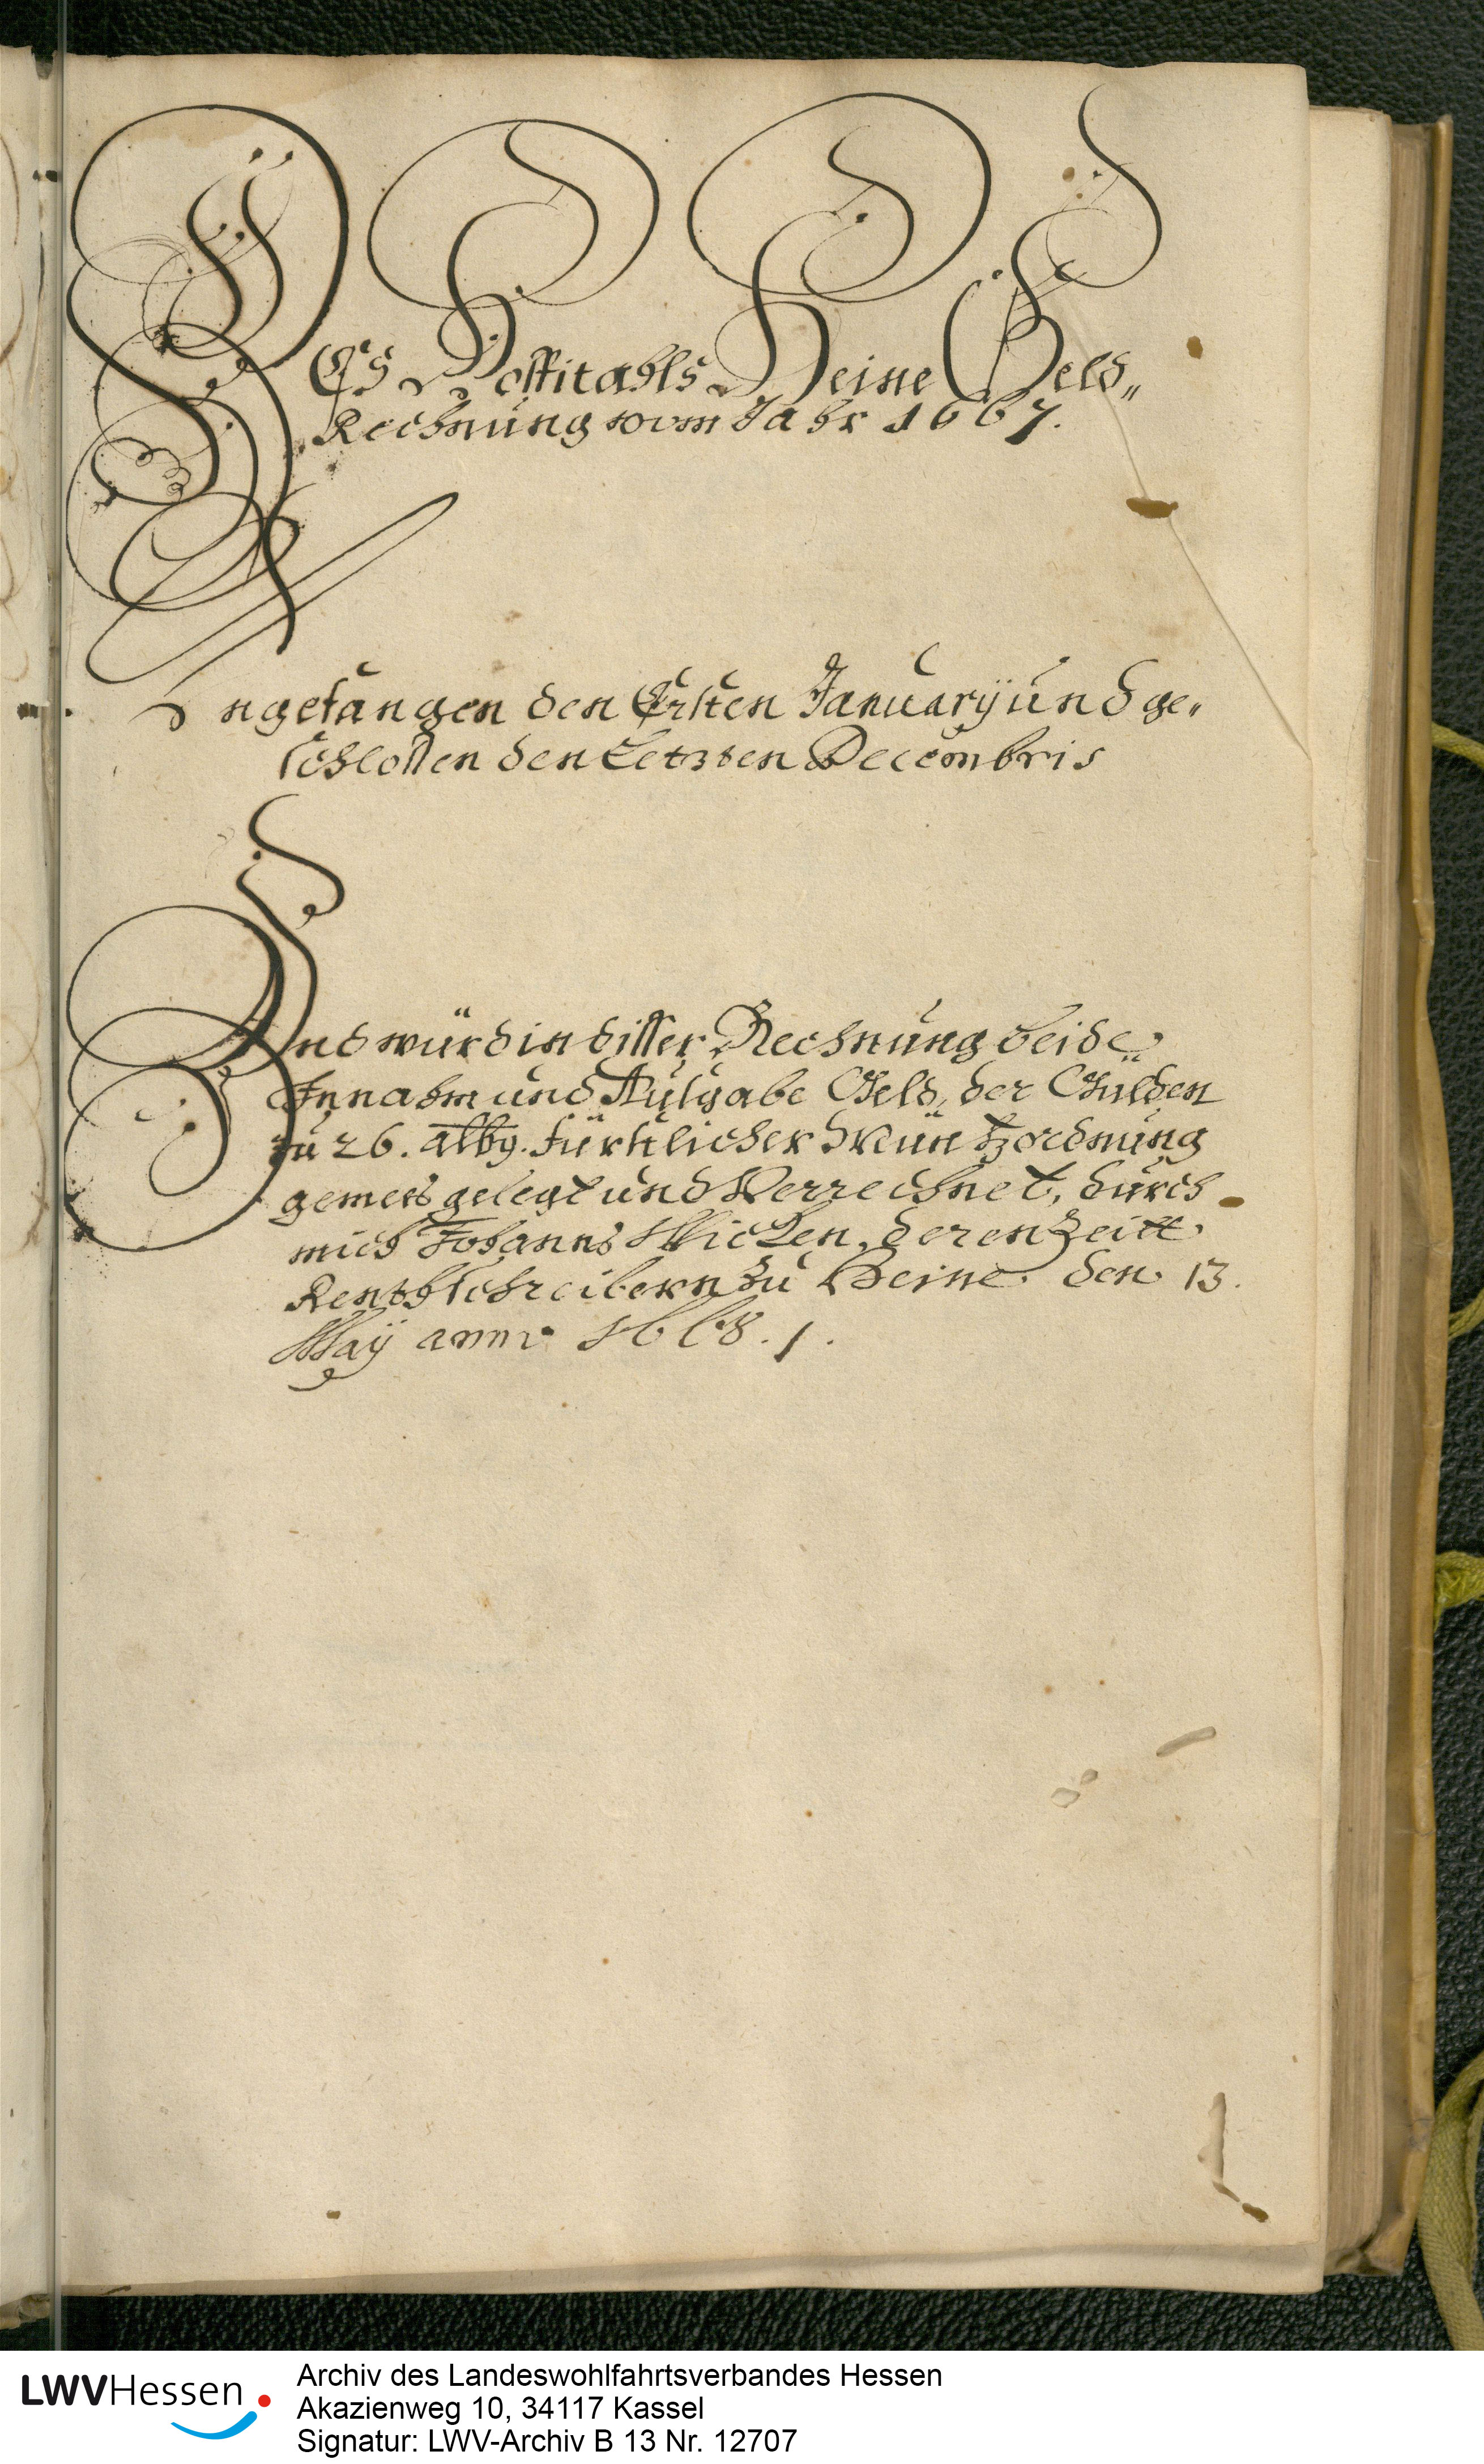 DEs Hospitahls Heine Geld„
Rechnung vom Jahr 1667.
Angefangen den Ersten Januarÿ und ge„
schlossen den Letzten Decembris
Vnd würd in disser Rechnung beide
Innahm und Ausgabe Geld, der Gülden
zu 26. alby. Fürstlicher Müntzordnung
gemees gelegt und Verrechnet, durch
mich Johannes Micken, derenzeitt
Rentschreibern zu Heine den 13.
Maÿ anno 1668. /.
LWVHessen
Archiv des Landeswohlfahrtsverbandes Hessen
Akazienweg 10, 34117 Kassel
Signatur: LWV-Archiv B 13 Nr. 12707